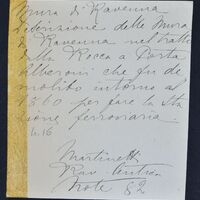 Mura di Ravenna
Descrizione delle Mura
di Ravenna nel tratto
dalla Rocca a Porta
Alberoni che fu de
molito intorno al
1860 per fare la sta
zione ferroviaria.
4.16
Martinetti
Rav. Antica
Note 82